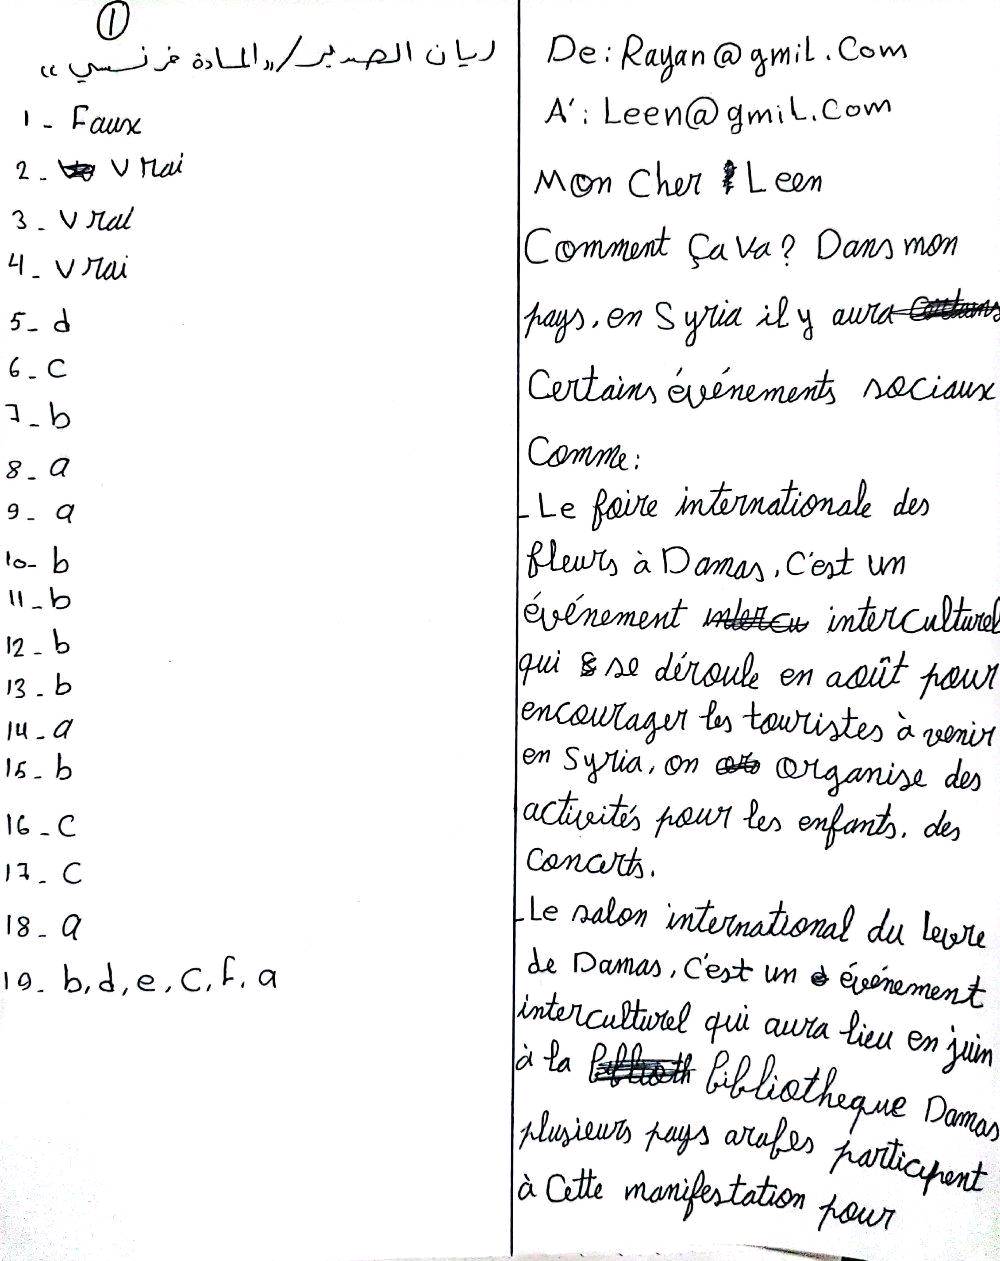 ①
ريان الصدير / "المادة فرنسي"
1 - Faux
2 - Vrai
3 - Vrai
4 - Vrai
5 - d
6 - C
7 - b
8 - a
9 - a
10 - b
11 - b
12 - b
13 - b
14 - a
15 - b
16 - C
17 - C
18 - a
19 - b, d, e, C, f, a
De: Rayan@gmil.Com
A': Leen@gmil.Com
Mon Cher Leen
Comment Ça Va? Dans mon
pays, en Syria il y aura
Certains événements sociaux
Comme:
- Le foire internationale des
fleurs à Damas, C'est un
événement interculturel
qui se déroule en août pour
encourager les touristes à venir
en Syria, on organise des
activités pour les enfants, des
concerts.
- Le salon international du levre
de Damas, C'est un événement
interculturel qui aura lieu en juin
à la bibliotheque Damas
plusieurs pays arabes participent
à Cette manifestation pour